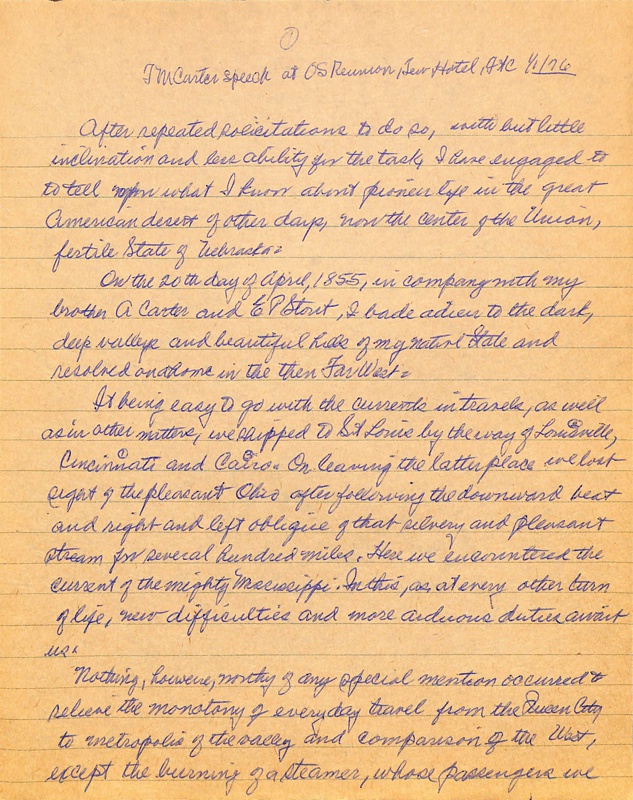 1
TM Carter speech at OS Reunion, Tew Hotel, A+C 1/1/76
After repeated solicitations to do so, with but little
inclination and less ability for the task, I have engaged to
to tell what I know about pioneer life in the great
American desert of other days, now the center of the Union,
fertile State of Nebraska.
On the 20th day of April, 1855, in company with my
brother A Carter and E P Stout, I bade adieu to the dark,
deep valleys and beautiful hills of my native State and
resolved on a home in the then Far West.
It being easy to go with the currents in travels, as well
as in other matters, we shipped to St Louis by the way of Louisville,
Cincinnati and Cairo. On leaving the latter place we lost
sight of the pleasant Ohio after following the downward
and right and left oblique of that silvery and pleasant
stream for several hundred miles. Here we encountered the
current of the mighty Mississippi. In this, as at every other turn
of life, new difficulties and more arduous duties await
us.
Nothing, however, worthy of any special mention occurred to
relieve the monotony of everyday travel from the Queen City
to metropolis of the valley and comparison of the West,
except the burning of a steamer, whose passengers we